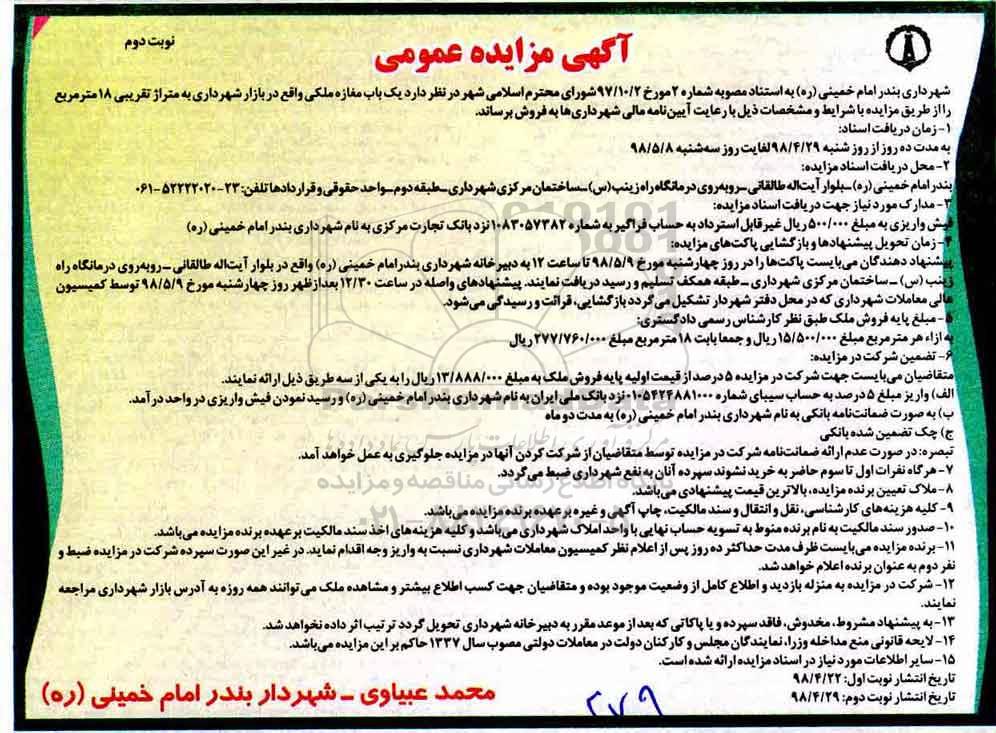 نوبت دوم
آگهی مزایده عمومی
شهرداری بندر امام خمینی (ره) به استناد مصوبه شماره ۲ مورخ ۹۷/۱۰/۲ شورای محترم اسلامی شهر در نظر دارد یک باب مغازه ملکی واقع در بازار شهرداری به متراژ تقریبی ۱۸ مترمربع
را از طریق مزایده با شرایط و مشخصات ذیل با رعایت آیین‌نامه مالی شهرداری‌ها به فروش برساند.
۱- زمان دریافت اسناد:
به مدت ده روز از روز شنبه ۹۸/۴/۲۹ لغایت روز سه‌شنبه ۹۸/۵/۸
۲- محل دریافت اسناد مزایده:
بندر امام خمینی (ره) ـ بلوار آیت‌اله طالقانی ـ روبه‌روی درمانگاه راه زینب (س) ـ ساختمان مرکزی شهرداری ـ طبقه دوم ـ واحد حقوقی و قراردادها تلفن: ۲۳-۵۲۲۲۲۰۲۰-۰۶۱
۳- مدارک مورد نیاز جهت دریافت اسناد مزایده:
فیش واریزی به مبلغ ۵۰۰/۰۰۰ ریال غیر قابل استرداد به حساب فراگیر به شماره ۱۰۸۳۰۵۷۳۸۲ نزد بانک تجارت مرکزی به نام شهرداری بندر امام خمینی (ره)
۴- زمان تحویل پیشنهادها و بازگشایی پاکت‌های مزایده:
پیشنهاد دهندگان می‌بایست پاکت‌ها را در روز چهارشنبه مورخ ۹۸/۵/۹ تا ساعت ۱۲ به دبیرخانه شهرداری بندر امام خمینی (ره) واقع در بلوار آیت‌اله طالقانی ـ روبه‌روی درمانگاه راه
زینب (س) ـ ساختمان مرکزی شهرداری ـ طبقه همکف تسلیم و رسید دریافت نمایند. پیشنهادهای واصله در ساعت ۱۲/۳۰ بعدازظهر روز چهارشنبه مورخ ۹۸/۵/۹ توسط کمیسیون
عالی معاملات شهرداری که در محل دفتر شهردار تشکیل می‌گردد بازگشایی، قرائت و رسیدگی می‌شود.
۵- مبلغ پایه فروش ملک طبق نظر کارشناس رسمی دادگستری:
به ازاء هر مترمربع مبلغ ۱۵/۵۰۰/۰۰۰ ریال و جمعا بابت ۱۸ مترمربع مبلغ ۲۷۷/۷۶۰/۰۰۰ ریال
۶- تضمین شرکت در مزایده:
متقاضیان می‌بایست جهت شرکت در مزایده ۵ درصد از قیمت اولیه پایه فروش ملک به مبلغ ۱۳/۸۸۸/۰۰۰ ریال را به یکی از سه طریق ذیل ارائه نمایند.
الف) واریز مبلغ ۵ درصد به حساب سیبای شماره ۰۱۰۵۴۲۴۸۸۱۰۰۰ نزد بانک ملی ایران به نام شهرداری بندر امام خمینی (ره) و رسید نمودن فیش واریزی در واحد درآمد.
ب) به صورت ضمانت‌نامه بانکی به نام شهرداری بندر امام خمینی (ره) به مدت دو ماه
ج) چک تضمین شده بانکی
تبصره: در صورت عدم ارائه ضمانت‌نامه شرکت در مزایده توسط متقاضیان از شرکت کردن آنها در مزایده جلوگیری به عمل خواهد آمد.
۷- هرگاه نفرات اول تا سوم حاضر به خرید نشوند سپرده آنان به نفع شهرداری ضبط می‌گردد.
۸- ملاک تعیین برنده مزایده، بالاترین قیمت پیشنهادی می‌باشد.
۹- کلیه هزینه‌های کارشناسی، نقل و انتقال و سند مالکیت، چاپ آگهی و غیره بر عهده برنده مزایده می‌باشد.
۱۰- صدور سند مالکیت به نام برنده منوط به تسویه حساب نهایی با واحد املاک شهرداری می‌باشد و کلیه هزینه‌های اخذ سند مالکیت بر عهده برنده مزایده می‌باشد.
۱۱- برنده مزایده می‌بایست ظرف مدت حداکثر ده روز پس از اعلام نظر کمیسیون معاملات شهرداری نسبت به واریز وجه اقدام نماید. در غیر این صورت سپرده شرکت در مزایده ضبط و
نفر دوم به عنوان برنده اعلام خواهد شد.
۱۲- شرکت در مزایده به منزله بازدید و اطلاع کامل از وضعیت موجود بوده و متقاضیان جهت کسب اطلاع بیشتر و مشاهده ملک می‌توانند همه روزه به آدرس بازار شهرداری مراجعه
نمایند.
۱۳- به پیشنهاد مشروط، مخدوش، فاقد سپرده و یا پاکاتی که بعد از موعد مقرر به دبیرخانه شهرداری تحویل گردد ترتیب اثر داده نخواهد شد.
۱۴- لایحه قانونی منع مداخله وزرا، نمایندگان مجلس و کارکنان دولت در معاملات دولتی مصوب سال ۱۳۳۷ حاکم بر این مزایده می‌باشد.
۱۵- سایر اطلاعات مورد نیاز در اسناد مزایده ارائه شده است.
تاریخ انتشار نوبت اول: ۹۸/۴/۲۲
تاریخ انتشار نوبت دوم: ۹۸/۴/۲۹
محمد عبیاوی ـ شهردار بندر امام خمینی (ره)
۲۷۹